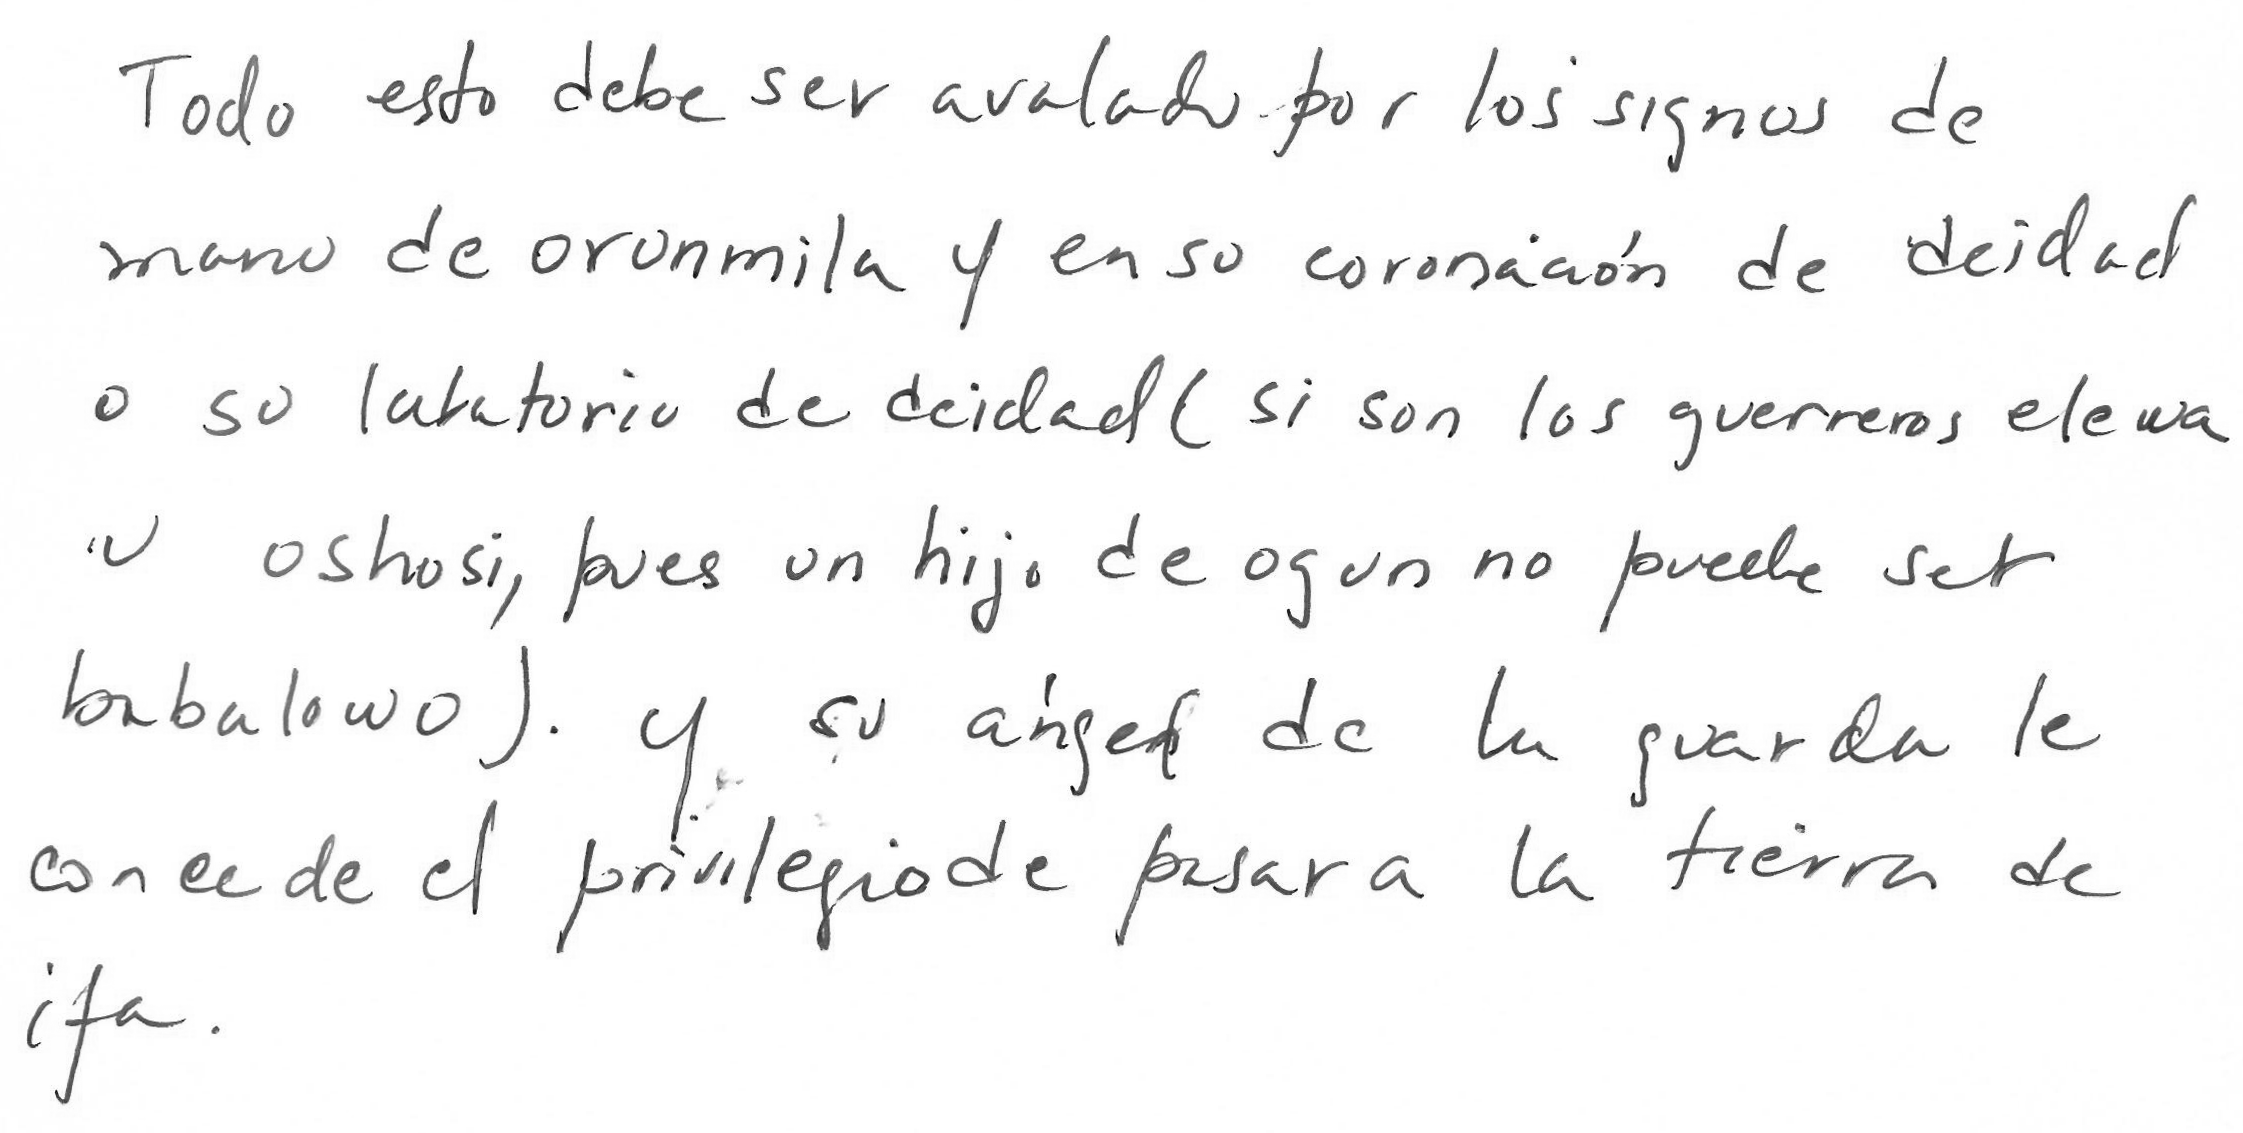 Todo esto debe ser avalado por los signos de
mano de orunmila y en su coronación de deidad
o su lavatorio de deidad ( si son los guerreros elewa
u oshosi, pues un hijo de ogun no puede ser
babalowo ). y su ángel de la guarda le
concede el privilegio de pasar a la tierra de
ifa.